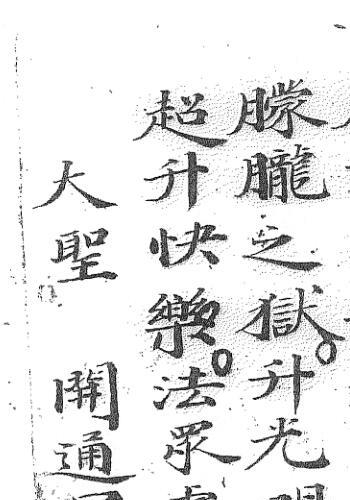 朦朧之獄升光
超升快樂法眾
大聖 開通